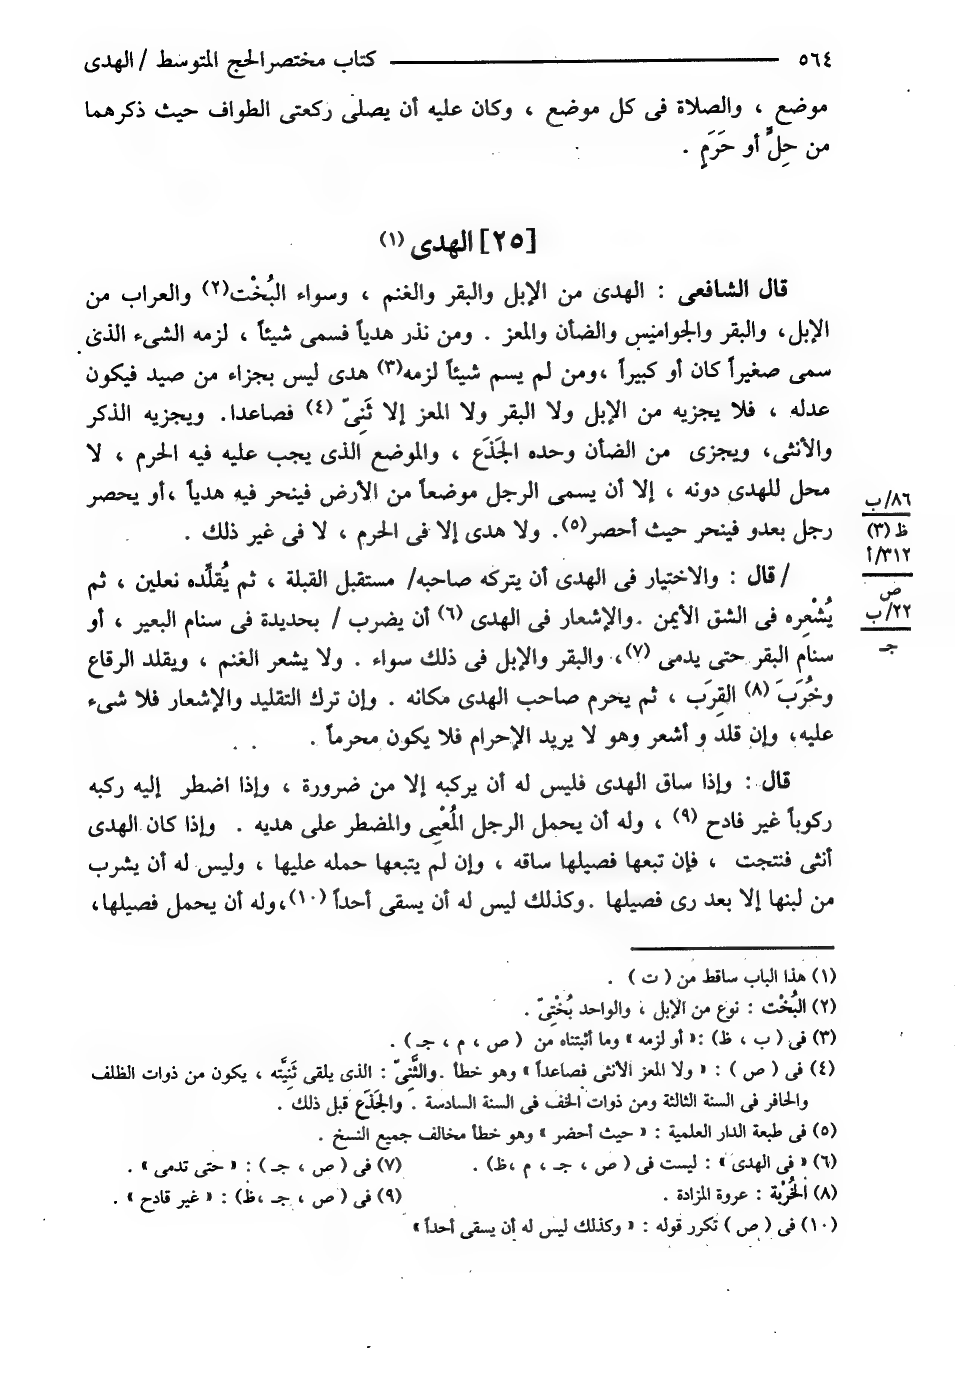 ٥٦٤ ــــــــــ كتاب مختصر الحج المتوسط / الهدى
موضع ، والصلاة فى كل موضع ، وكان عليه أن يصلى ركعتى الطواف حيث ذكرهما
من حِلٍّ أو حَرَمٍ .
[٢٥] الهدى (١)
قال الشافعى : الهدى من الإبل والبقر والغنم ، وسواء البُخْت(٢) والعراب من
الإبل، والبقر والجواميس والضأن والمعز . ومن نذر هدياً فسمى شيئاً ، لزمه الشىء الذى
سمى صغيراً كان أو كبيراً ،ومن لم يسم شيئاً لزمه(٣) هدى ليس بجزاء من صيد فيكون
عدله ، فلا يجزيه من الإبل ولا البقر ولا المعز إلا ثَنِىّ (٤) فصاعدا. ويجزيه الذكر
والأنثى، ويجزى من الضأن وحده الجَذَع ، والموضع الذى يجب عليه فيه الحرم ، لا
محل للهدى دونه ، إلا أن يسمى الرجل موضعاً من الأرض فينحر فيه هدياً ،أو يحصر
رجل بعدو فينحر حيث أحصر(٥). ولا هدى إلا فى الحرم ، لا فى غير ذلك .
/ قال : والاختيار فى الهدى أن يتركه صاحبه/ مستقبل القبلة ، ثم يُقلِّده نعلين ، ثم
يُشْعِره فى الشق الأيمن .والإشعار فى الهدى (٦) أن يضرب / بحديدة فى سنام البعير ، أو
سنام البقر حتى يدمى (٧)، والبقر والإبل فى ذلك سواء . ولا يشعر الغنم ، ويقلد الرقاع
وخُرَبَ (٨) القِرَب ، ثم يحرم صاحب الهدى مكانه . وإن ترك التقليد والإشعار فلا شىء
عليه، وإن قلد و أشعر وهو لا يريد الإحرام فلا يكون محرماً .
قال : وإذا ساق الهدى فليس له أن يركبه إلا من ضرورة ، وإذا اضطر إليه ركبه
ركوباً غير فادح (٩) ، وله أن يحمل الرجل المُعْيِى والمضطر على هديه . وإذا كان الهدى
أنثى فنتجت ، فإن تبعها فصيلها ساقه ، وإن لم يتبعها حمله عليها ، وليس له أن يشرب
من لبنها إلا بعد رى فصيلها .وكذلك ليس له أن يسقى أحداً (١٠)،وله أن يحمل فصيلها،
٨٦/ب
ظ (٣)
٣١٢/أ
ص
٢٢/ب
جـ
(١) هذا الباب ساقط من ( ت ) .
(٢) البُخْت : نوع من الإبل ، والواحد بُخْتِىّ .
(٣) فى ( ب ، ظ) :« أو لزمه » وما أثبتناه من ( ص ، م ، جـ ) .
(٤) فى ( ص ) : « ولا المعز الأنثى فصاعداً » وهو خطأ .والثَّنِىّ : الذى يلقى ثَنِيَّته ، يكون من ذوات الظلف
والحافر فى السنة الثالثة ومن ذوات الخف فى السنة السادسة . والجَذَع قبل ذلك .
(٥) فى طبعة الدار العلمية : « حيث أحضر » وهو خطأ مخالف جميع النسخ .
(٦) « فى الهدى » : ليست فى ( ص ، جـ ، م ،ظ) . (٧) فى ( ص ، جـ ) : « حتى تدمى » .
(٨) الخُرْبة : عروة المزادة . (٩) فى ( ص ، جـ ،ظ) : « غير قادح » .
(١٠) فى ( ص ) تكرر قوله : « وكذلك ليس له أن يسقى أحداً »